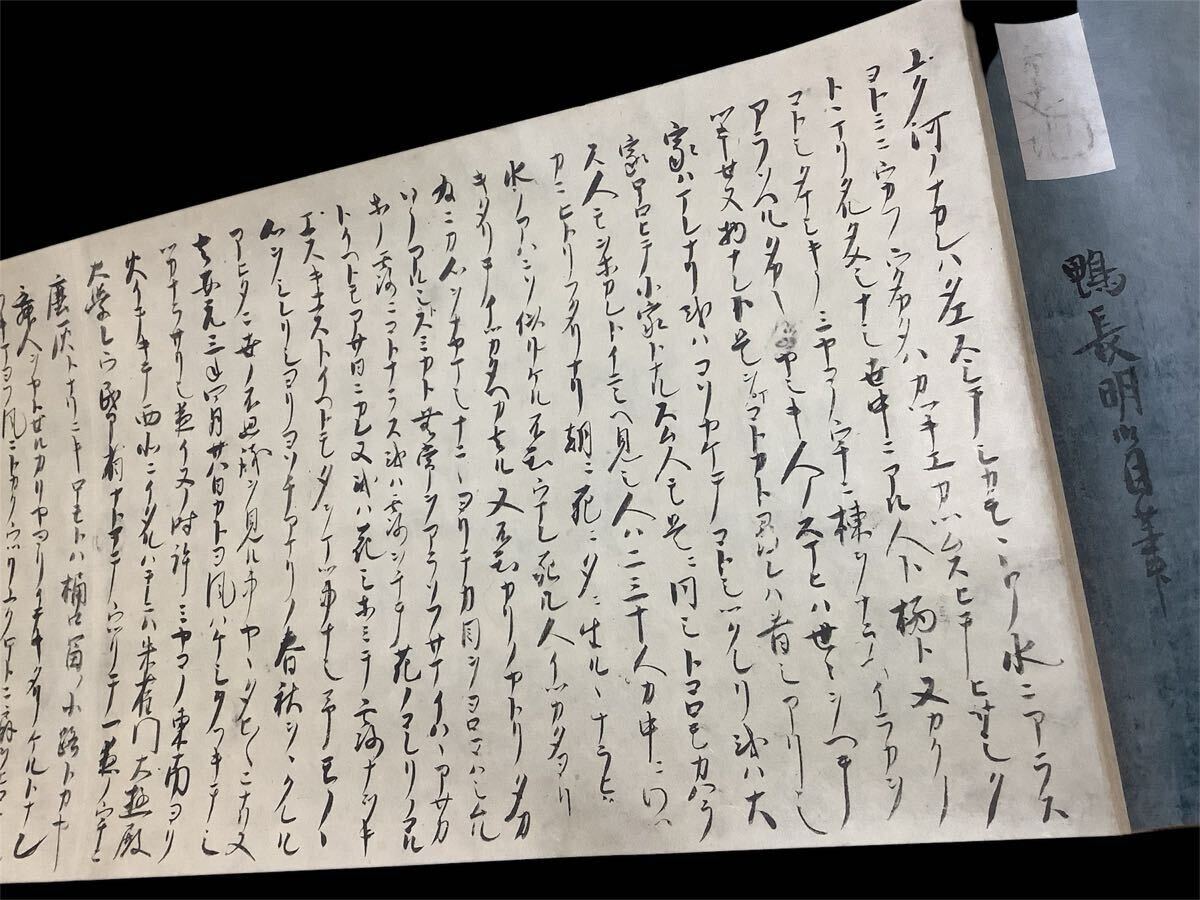 鴨長明自筆
ユク河ノナカレハタエスシテシカモヽトノ水ニアラス
ヨトミニウカフウタカタハカツキエカツムスヒテヒサシク
トヽマリタルタメシナシ世中ニアル人ト栖ト又カクノ
コトシタマシキノミヤコノウチニ棟ヲナラヘイラカヲ
アラソヘルタカキイヤシキ人ノスマヒハ世々ヲヘテ
ツキセヌ物ナレト是ヲマコトカト尋レハ昔シアリシ
家ハマレナリ或ハコソヤケテコトシツクレリ或ハ大
家ホロヒテ小家トナルスム人モ是ニ同シトコロモカハラ
ス人モヲホカレトイニシヘ見シ人ハ二三十人カ中ニワツ
カニヒトリフタリナリ朝ニ死ニ夕ニ生ルヽナラヒ
水ノアハニソ似リケル不知ウマレ死ル人イツカタヨリ
キタリテイツカタヘカ去ル又不知カリノヤトリタカ
為ニカ心ヲナヤマシナニヽヨリテカ目ヲヨロコハシムル
ソノアルシトスミカト無常ヲアラソフサマイハヽアサカ
ホノ露ニコトナラス或ハ露ヲチテ花ノコレリノコル
トイヘトモアサ日ニカレヌ或ハ花シホミテ露ナヲキ
エスキエストイヘトモタヲマツ事ナシ予モノヽ
心ヲシレリシヨリヨソチアマリノ春秋ヲヽクレル
アヒタニ世ノ不思議ヲ見ル事ヤヽタヒヽニナリヌ
去安元三年四月廿八日カトヨ風ハケシクフキテシ
ツカナラサリシ夜イヌノ時許ミヤコノ東南ヨリ
火イテキテ西北ニイタルハテニハ朱雀門大極殿
大学レウ民部省ナトマテウツリテ一夜ノウチニ
塵灰トナリニキホモトハ桶口冨ノ小路トカヤ
舞人ヲヤトセルカリヤヨリイテキタリケルトナン
フキマヨフ風ニトカクウツリユクホトニ